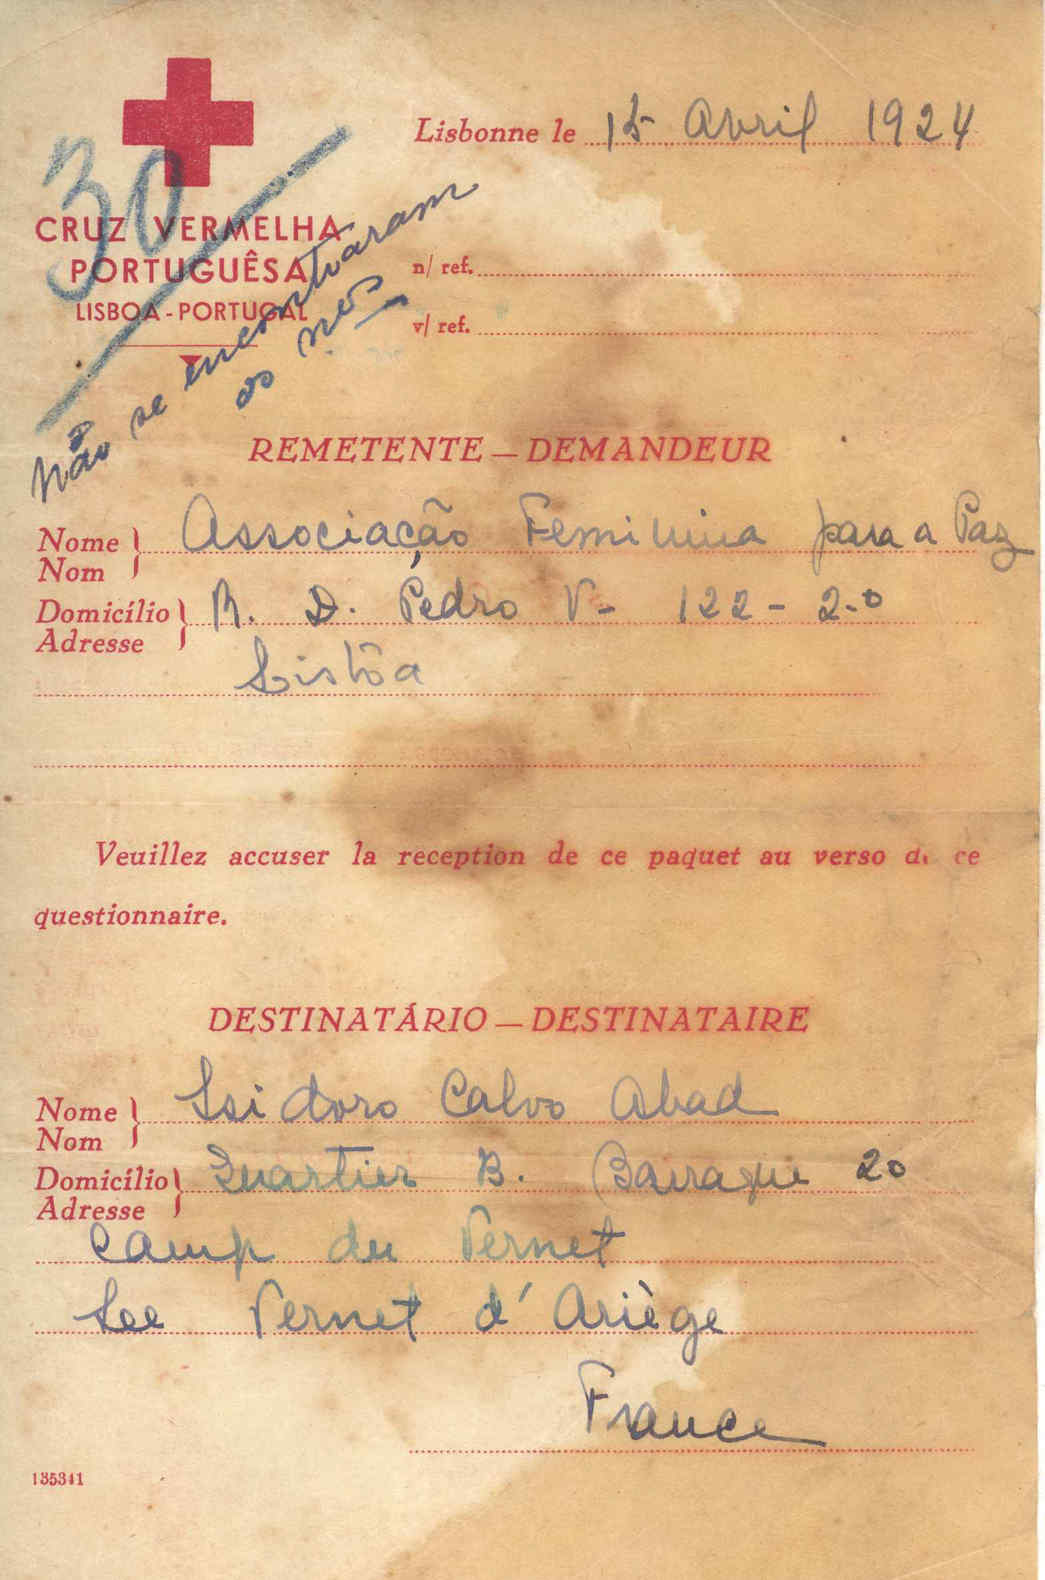 Lisbonne le 15 Avril 1924
30
CRUZ VERMELHA
PORTUGUÊSA
LISBOA - PORTUGAL
n/ ref.
v/ ref.
Não se encontraram
os nos
REMETENTE — DEMANDEUR
Nome Associação Feminina para a Paz
Nom
Domicílio R. D. Pedro V - 122 - 2-º
Adresse
Lisbôa
Veuillez accuser la reception de ce paquet au verso de ce
questionnaire.
DESTINATÁRIO — DESTINATAIRE
Nome Isidoro Calvo Abad
Nom
Domicílio Quartier B. Barraque 20
Adresse
Camp du Vernet
Lee Vernet d'Ariège
France
135341